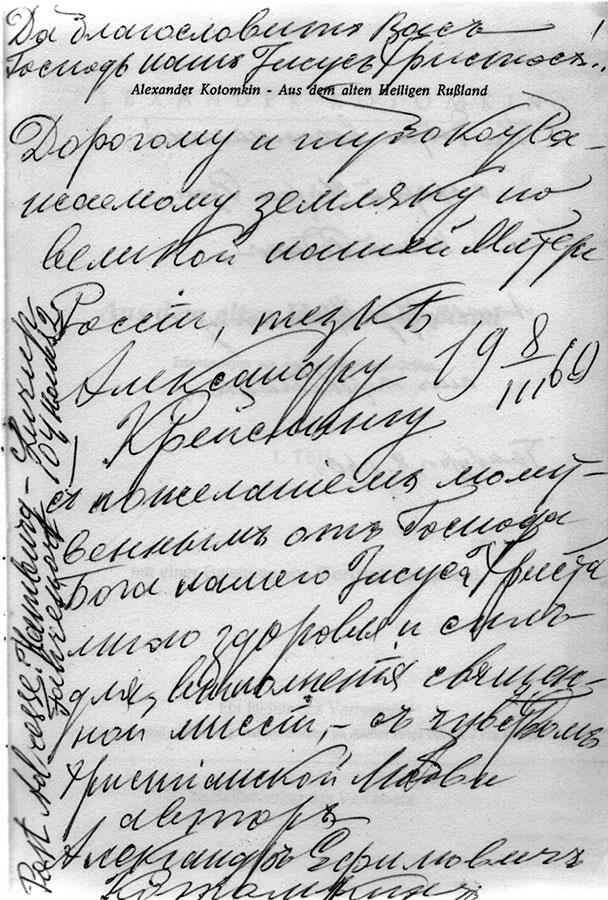 Да благословитъ Васъ !
Господь нашъ Іисусъ Христосъ..
Alexander Kotomkin - Aus dem alten Heiligen Rußland
Дорогому и глубокоува-
жаемому земляку по
великой нашей Матери
Россіи, тезкѣ
Александру 19 8/III 69
Крейслингу
съ пожеланіемъ молит-
веннымъ отъ Господа
Бога нашего Іисуса Христа
много здоровья и силъ
для выполненія священ-
ной миссіи, – съ чувствомъ
Христіанской Любви
авторъ
Александръ Ефимовичъ
Котомкинъ
Post Adresse: Hamburg - Lurup
Fahrenort 104